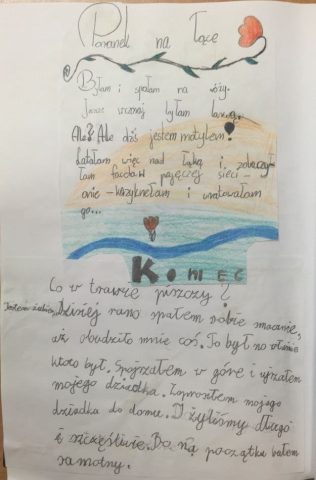 Poranek na Łące
Byłam i spałam na róży.
Jeszcze wczoraj byłam larwą.
Ale? Ale dziś jestem motylem!
Latałam więc nad łąką i zobaczy-
łam faceta w pajęczej sieci-
onie - krzyknełam i uratowałam
go...
KONIEC
Co w trawie piszczy?
Dzisiej rano spałem sobie smacznie,
aż obudziło mnie coś. To był no właśnie
kto to był. Spojrzałem w górę i ujrzałem
mojego dziadka. Zaprosiłem mojego
dziadka do domu. I żyliśmy długo
i szczęśliwie. Bo na początku byłem
samotny.